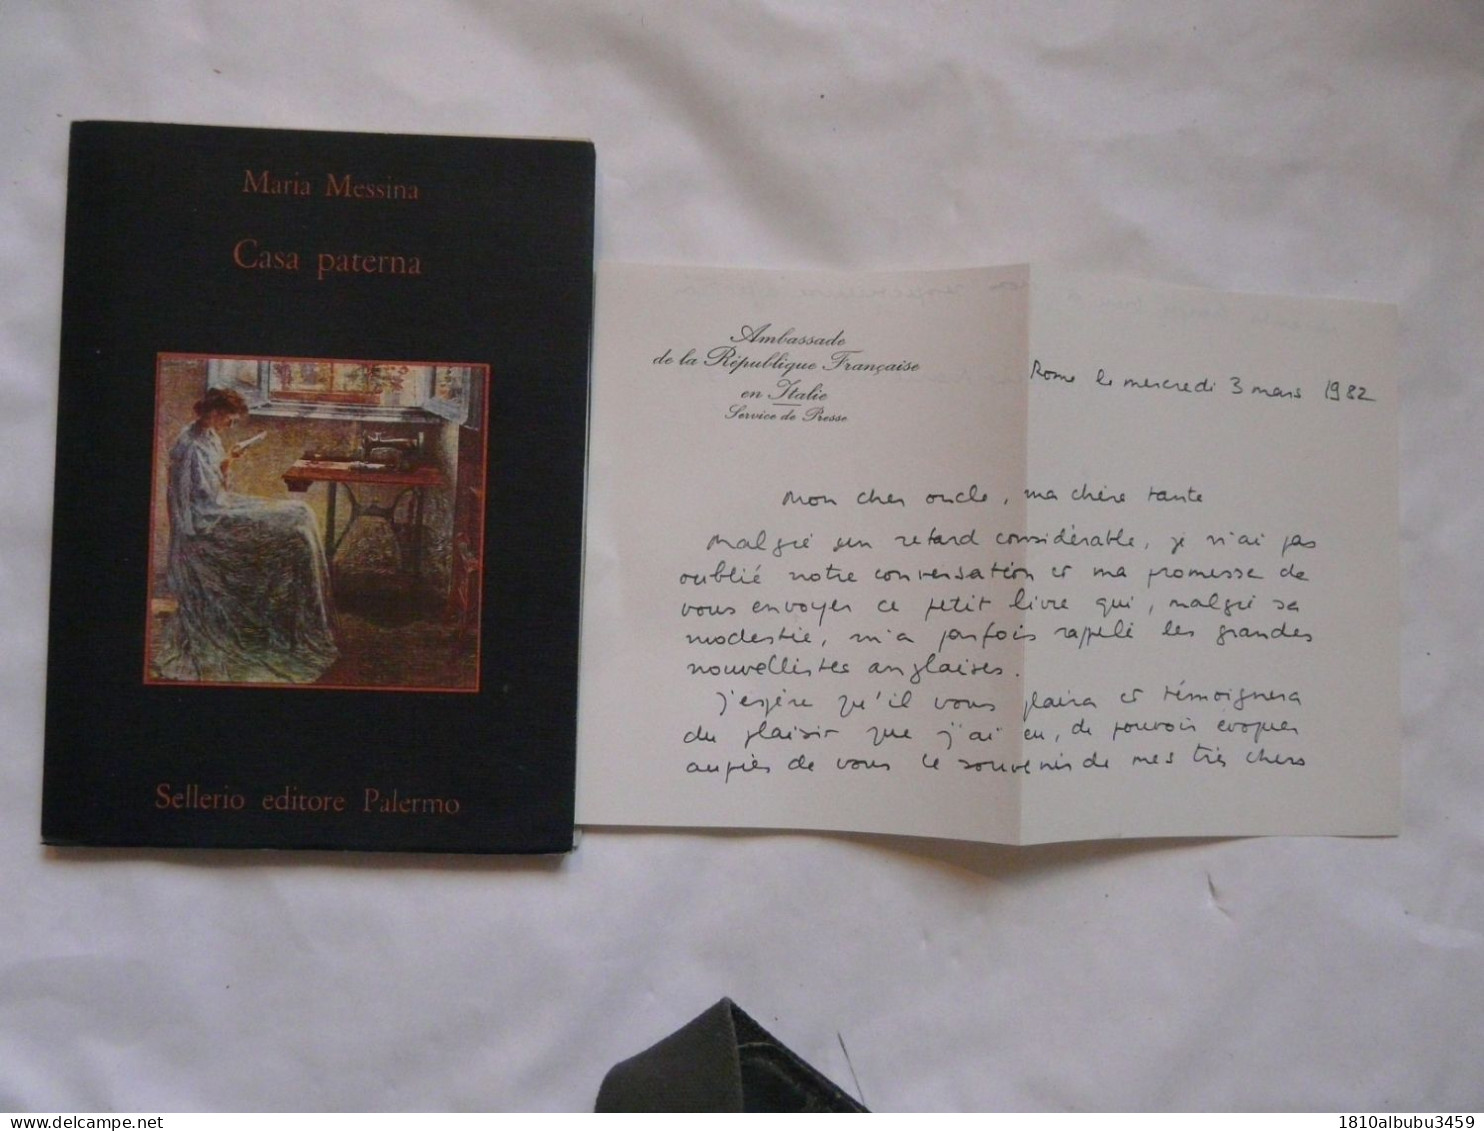 Maria Messina
Casa paterna
Sellerio editore Palermo
Ambassade
de la République Française
en Italie
Service de Presse
Rome le mercredi 3 mars 1982
Mon cher oncle, ma chère tante
Malgré un retard considérable, je n'ai pas
oublié notre conversation et ma promesse de
vous envoyer ce petit livre qui, malgré sa
modestie, m'a parfois rappelé les grandes
nouvellistes anglaises.
J'espère qu'il vous plaira et témoignera
du plaisir que j'ai eu, de pouvoir évoquer
auprès de vous le souvenir de mes très chers
delcampe.net
1810albubu3459